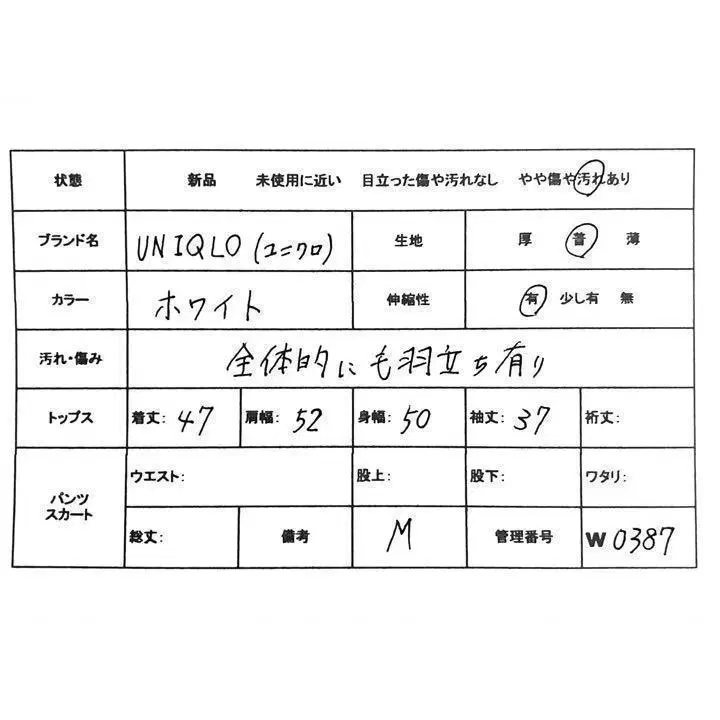 状態 新品 未使用に近い 目立った傷や汚れなし やや傷や汚れあり
ブランド名 UNIQLO (ユニクロ) 生地 厚 普 薄
カラー ホワイト 伸縮性 有 少し有 無
汚れ・傷み 全体的にも羽立ち有り
トップス 着丈: 47 肩幅: 52 身幅: 50 袖丈: 37 裄丈:
パンツ スカート ウエスト: 股上: 股下: ワタリ:
総丈: 備考 M 管理番号 W 0387